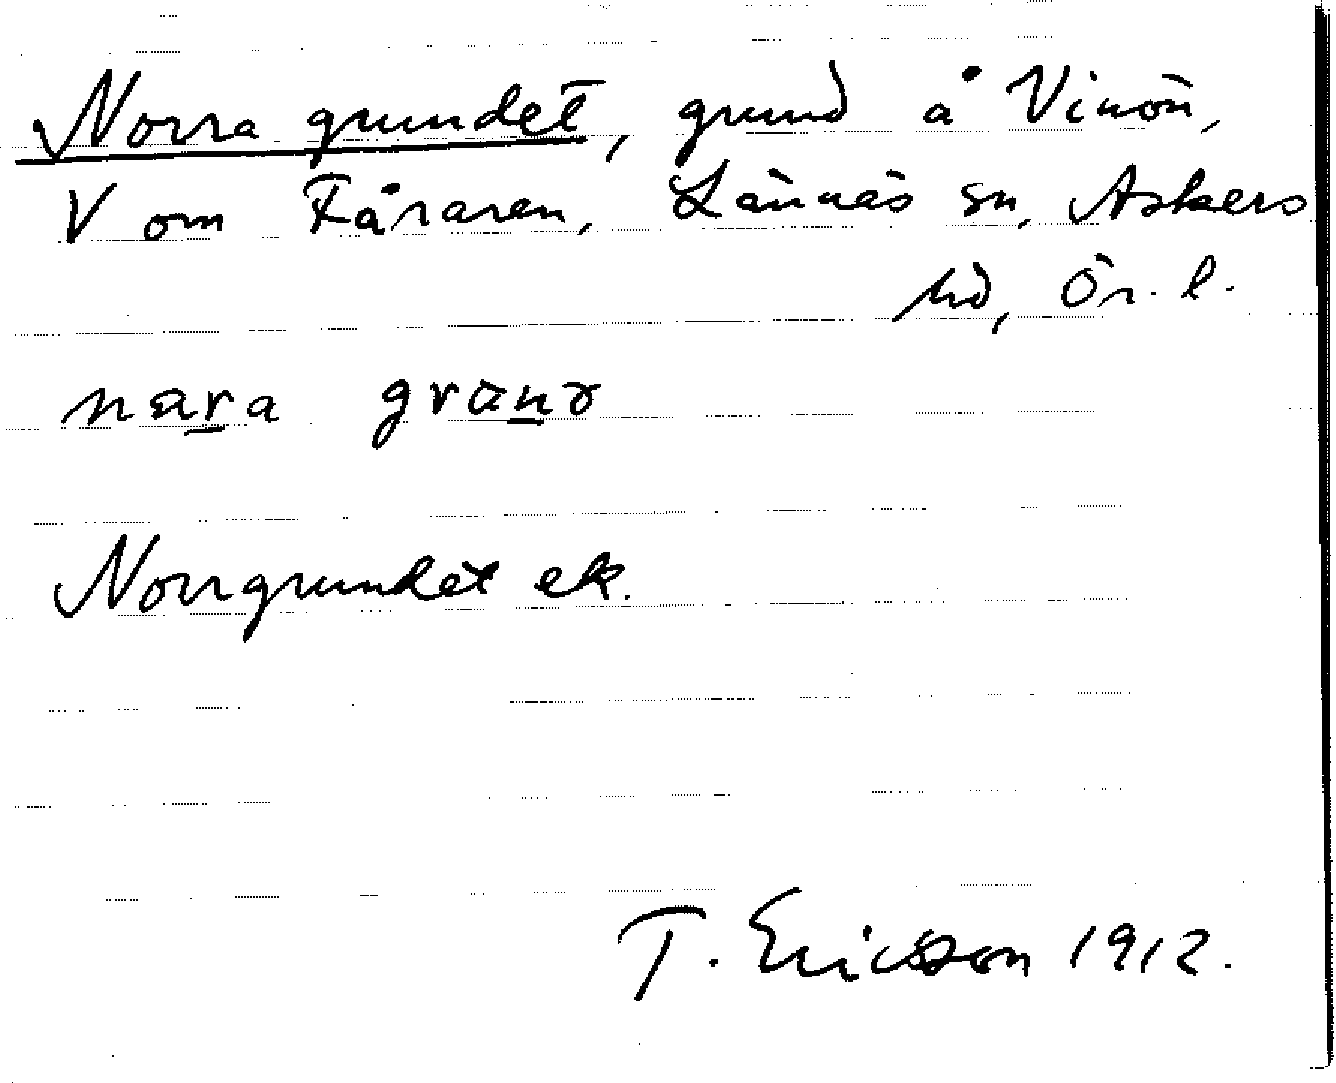 Norra grundet, grund å Vinön,
V om Fåraren, Lännäs sn, Askers
hd, Ör. l.
Norrgrundet ek.
T. Ericsson 1912.